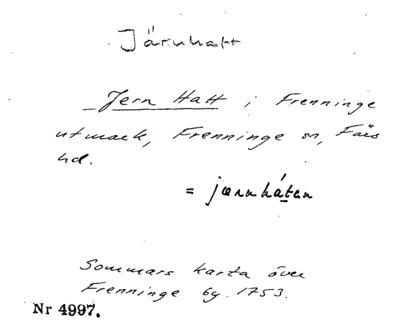 Järnhatt
Jern Hatt i Frenninge
utmark, Frenninge sn, Färs
hd.
= jærnhátan
Sommars karta över
Frenninge by. 1753.
Nr 4997.